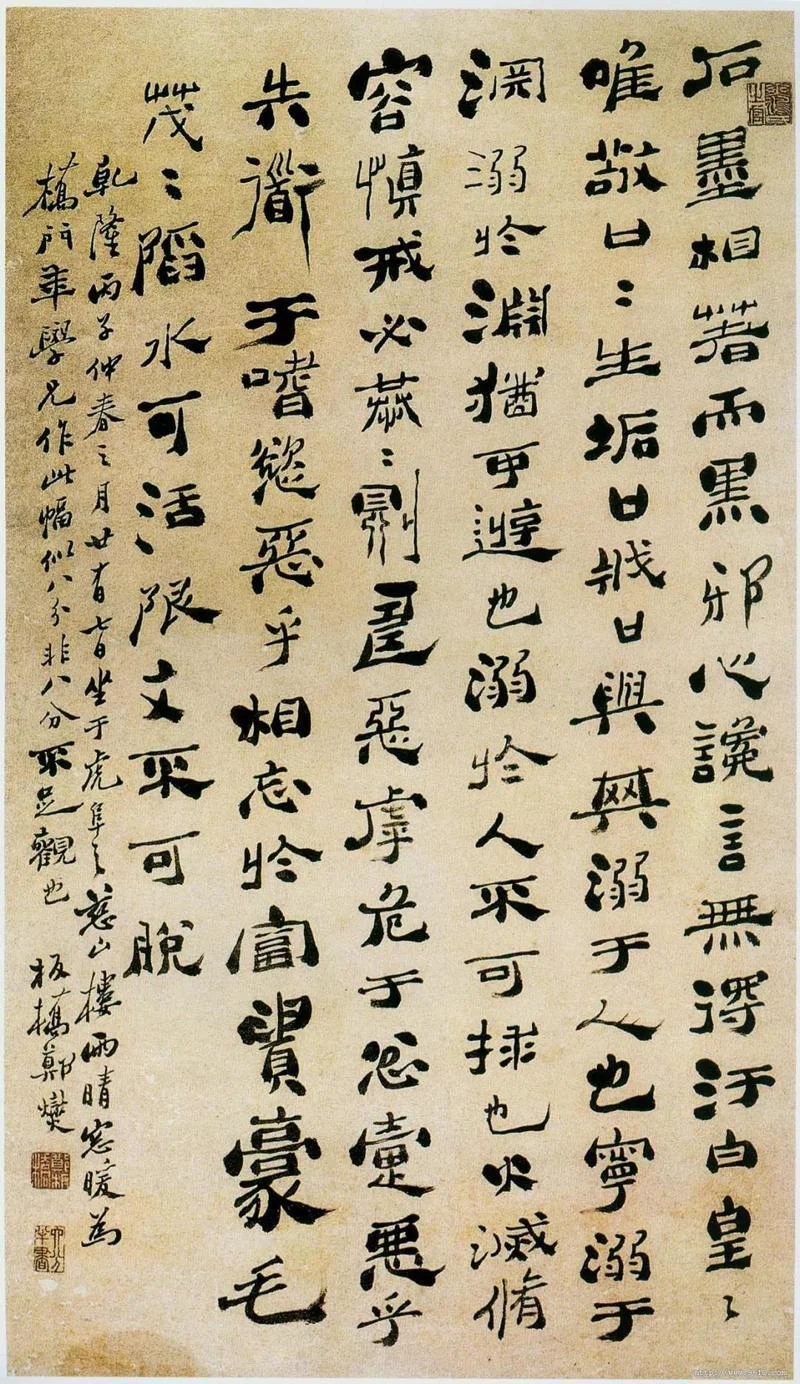 石墨相著而黑邪心讒言無得汙白皇〻
唯敬口〻生垢口戕口與其溺于人也寧溺于
淵溺於淵猶可遊也溺於人不可救也火滅脩
容慎戒必恭〻則壽惡虖危于忿疐惡乎
失道于嗜慾惡乎相忘於富貴豪毛
茂〻陷水可活陷文不可脫
乾隆丙子仲春之月廿有七日坐于虎阜之山樓雨晴窓暖為
橋門年學兄作此幅似八分非八分不足觀也 板橋鄭燮